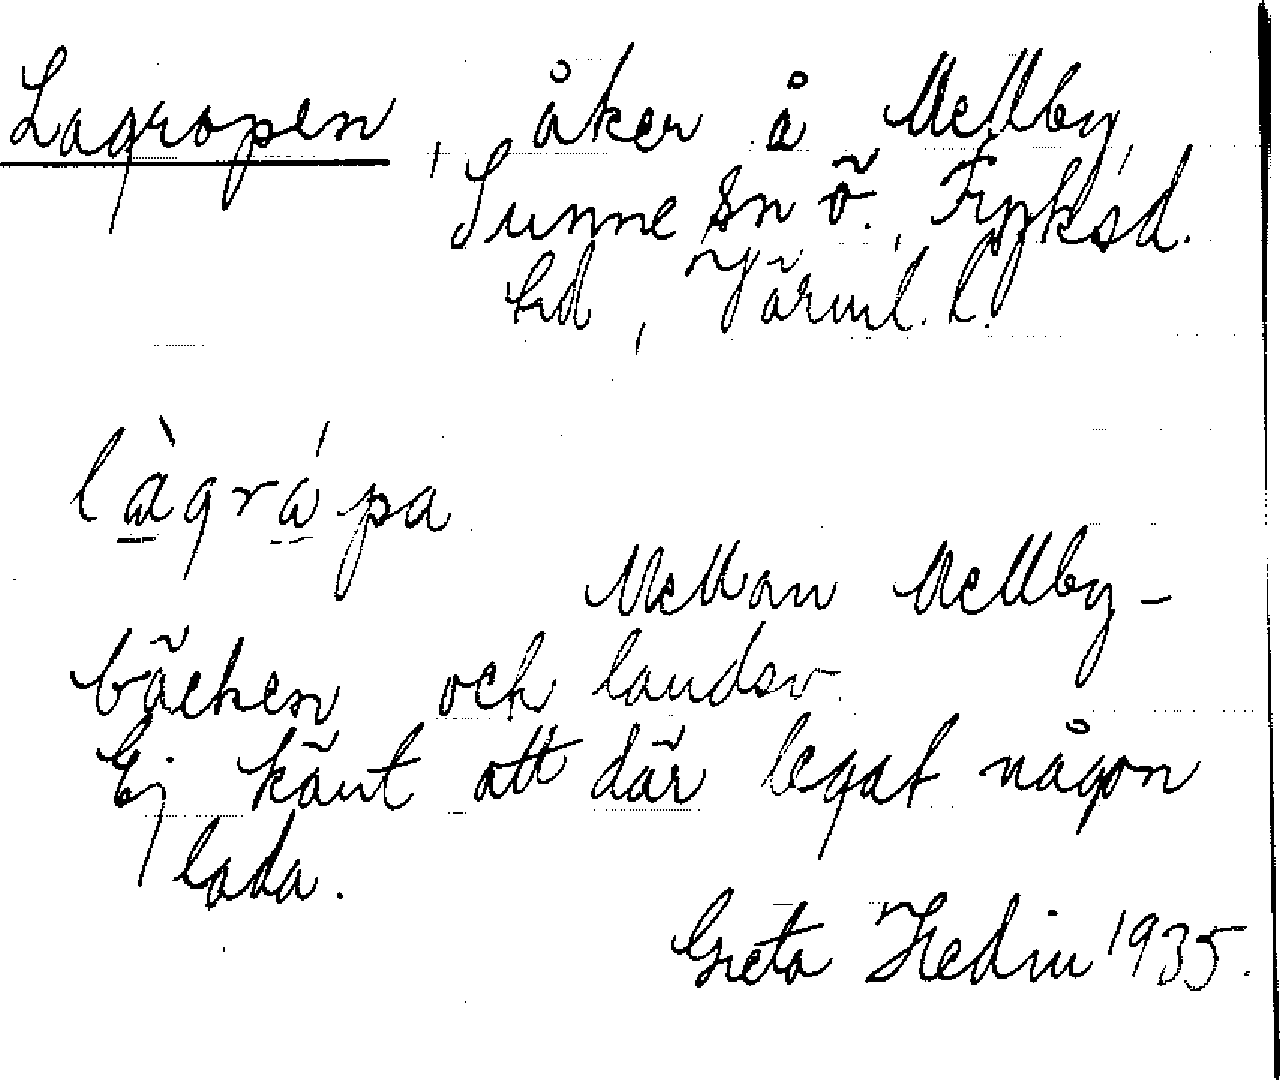 Lagropen, åker å Mellby,
Sunne sn ö., Fryksd.
hd, Värml. l.
làgrá pa
Mellan Mellby-
bäcken och landsv.
Ej känt att där legat någon
lada.
Greta Hedin 1935.